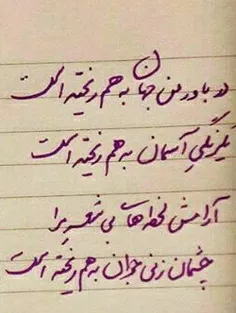 در باور من جهان به هم ریخته است
یکرنگی آسمان به هم ریخته است
آرامش لحظه‌های بی شعر مرا
چشمان زنی جوان به هم ریخته است